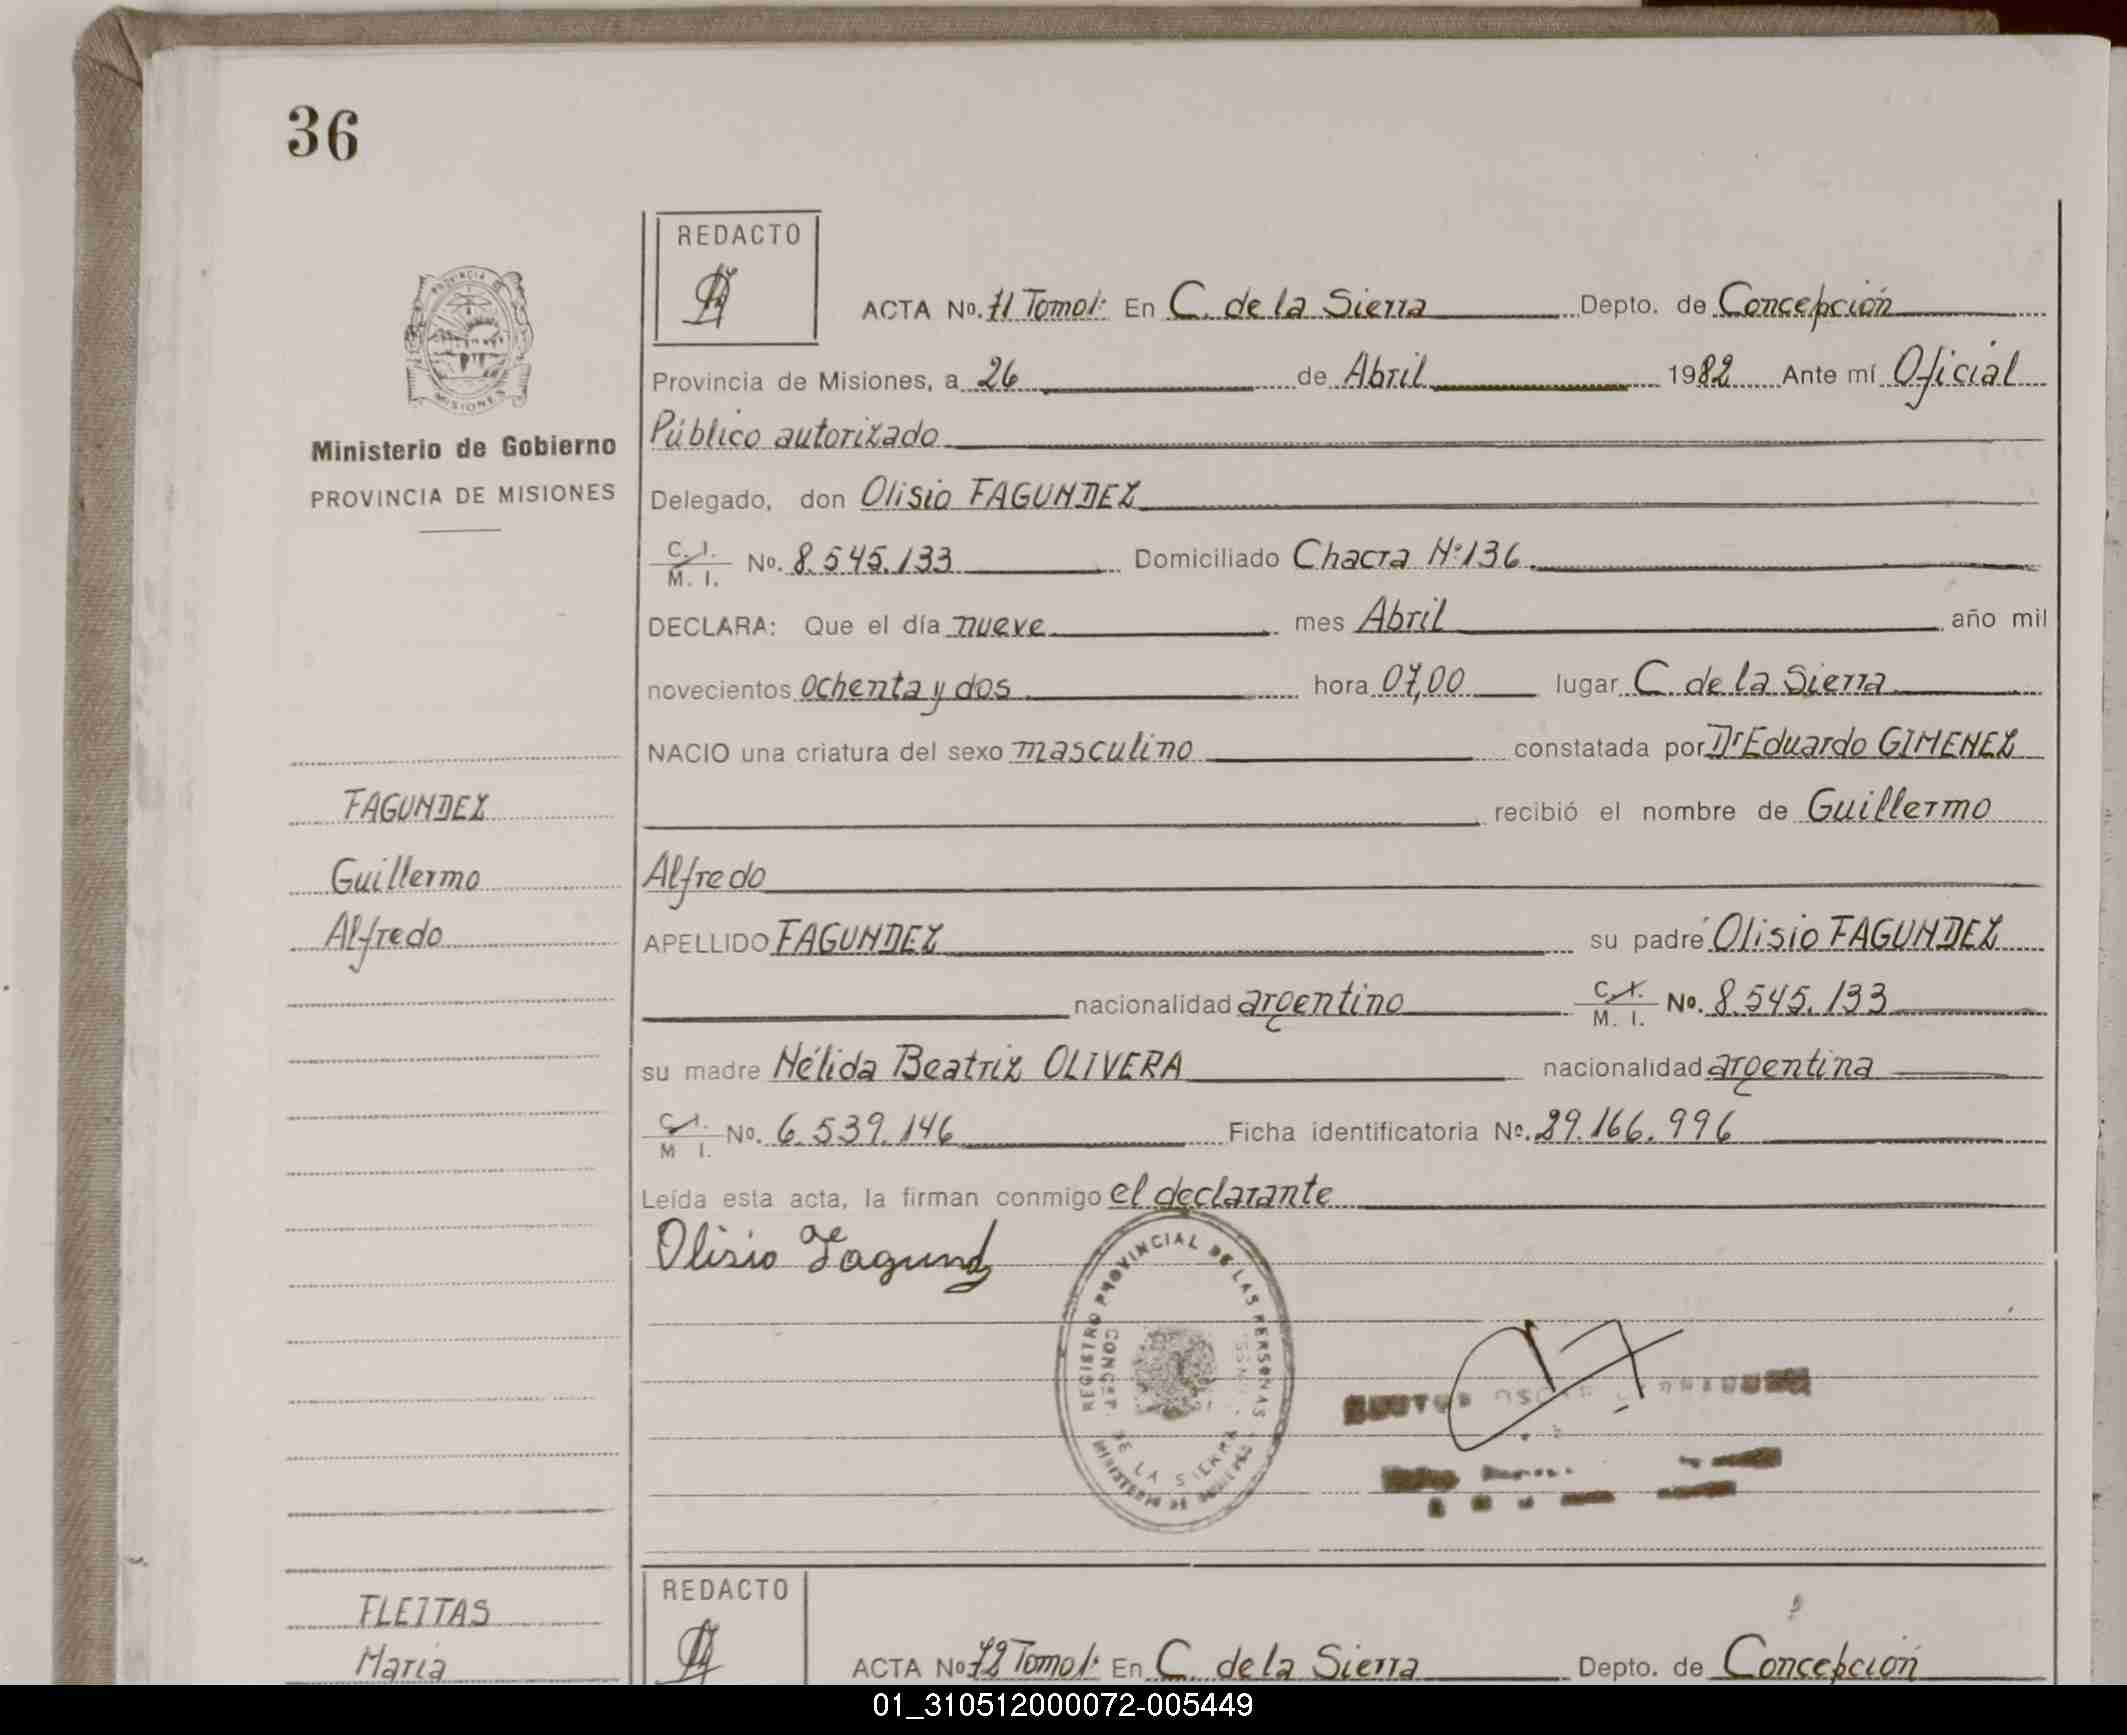 36
REDACTO
ACTA No. 71 Tomo 1º En C. de la Sierra Depto. de Concepción
Provincia de Misiones, a 26 de Abril 1982 Ante mí Oficial
Público autorizado
PROVINCIA
MISIONES
Ministerio de Gobierno
PROVINCIA DE MISIONES
Delegado, don Olisio FAGUNDEZ
C. I.
M. I. No. 8.545.133 Domiciliado Chacra Nº 136
DECLARA: Que el día nueve mes Abril año mil
novecientos ochenta y dos hora 07,00 lugar C. de la Sierra
NACIO una criatura del sexo masculino constatada por Dr Eduardo GIMENEZ
recibió el nombre de Guillermo
FAGUNDEZ
Guillermo
Alfredo
Alfredo
APELLIDO FAGUNDEZ su padre Olisio FAGUNDEZ
nacionalidad argentino C. I.
M. I. No. 8.545.133
su madre Nélida Beatriz OLIVERA nacionalidad argentina
C. I.
M I. No. 6.539.146 Ficha identificatoria No. 29.166.996
Leída esta acta, la firman conmigo el declarante
Olisio Fagundez
REGISTRO PROVINCIAL DE LAS PERSONAS
CONCEP. DE LA SIERRA
MINISTERIO DE
FLEITAS
María
REDACTO
ACTA No 72 Tomo 1º En C. de la Sierra Depto. de Concepción
01_310512000072-005449